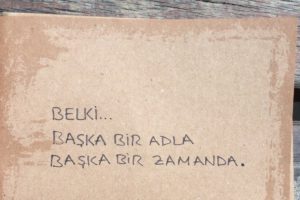 BELKİ...
BAŞKA BİR ADLA
BAŞKA BİR ZAMANDA.